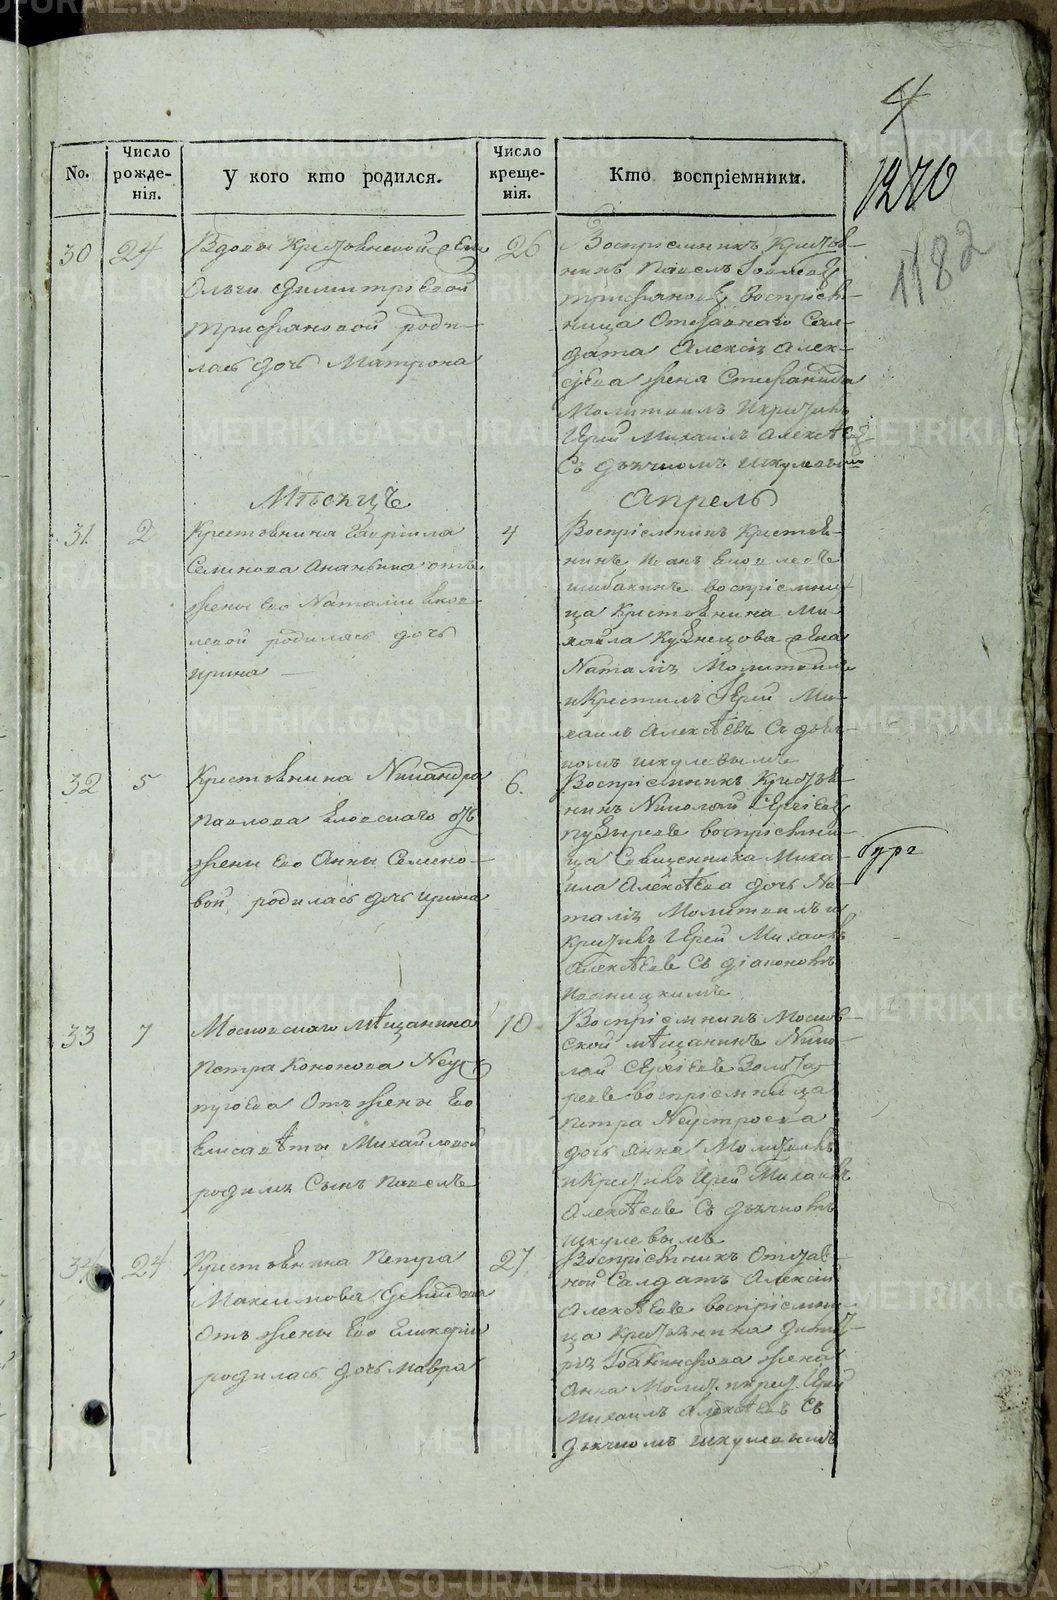 4
1270
1182
No.
Число рожде-нія.
У кого кто родился.
Число креще-нія.
Кто воспріемники.
30
24
Вдовы Крестьянской
Ольги Димитріевой
Трифановой роди-
лась дочь Матрона
26
Воспріемникъ Кресть-
нинъ Павелъ
Трифановъ воспріем-
ница Отставнаго Сол-
дата Алексія Алек-
сѣева жена Стефанида
Молитвилъ и крестилъ
Іерей Михаилъ Алексѣевъ
Съ дьячкомъ Шкулевымъ
Мѣсяцъ
Апрель
31
2
Крестьянина Гавріила
Семенова Ананьина отъ
жены Его Наталіи Яков-
левой родилась дочь
Ирина
4
Воспріемникъ Крестья-
нинъ Иванъ
Шибакинъ воспріемни-
ца Крестьянина Ми-
хайла Кузнецова жена
Наталія Молитвилъ
и Крестилъ Іерей Ми-
хаилъ Алексѣевъ Съ дьяч-
комъ Шкулевымъ
32
5
Крестьянина Никандра
Павлова Еловскаго отъ
жены Его Анны Семено-
вой родилась дочь Ирина
6.
Воспріемникъ Крестья-
нинъ Николай Сергіевъ
Пузыревъ воспріемни-
ца Священника Миха-
ила Алексѣева дочь На-
талія Молитвилъ и
крестилъ Іерей Михаилъ
Алексѣевъ Съ діакономъ
Иваницкимъ
33
7
Московскаго мѣщанина
Петра Кононова Неус-
Отъ жены Его
Елисаветы Михайловой
родился Сынъ Павелъ
10
Воспріемникъ Москов-
ской мѣщанинъ Нико-
лай Сергіевъ Золота-
ревъ воспріемница
Петра Неустроева
дочь Анна Молитвилъ
и Крестилъ Іерей Михаилъ
Алексѣевъ Съ дьячкомъ
Шкулевымъ
34
24
Крестьянина Петра
Максимова
Отъ жены Его Гликеріи
родилась дочь Мавра
27
Воспріемникъ Отстав-
ной Салдатъ Алексій
Алексѣевъ воспріемни-
ца Крестьянина
жена
Анна Молит. и крест. Іерей
Михаилъ Алексѣевъ Съ
дьячкомъ Шкулевымъ
METRIKI.GASO-URAL.RU